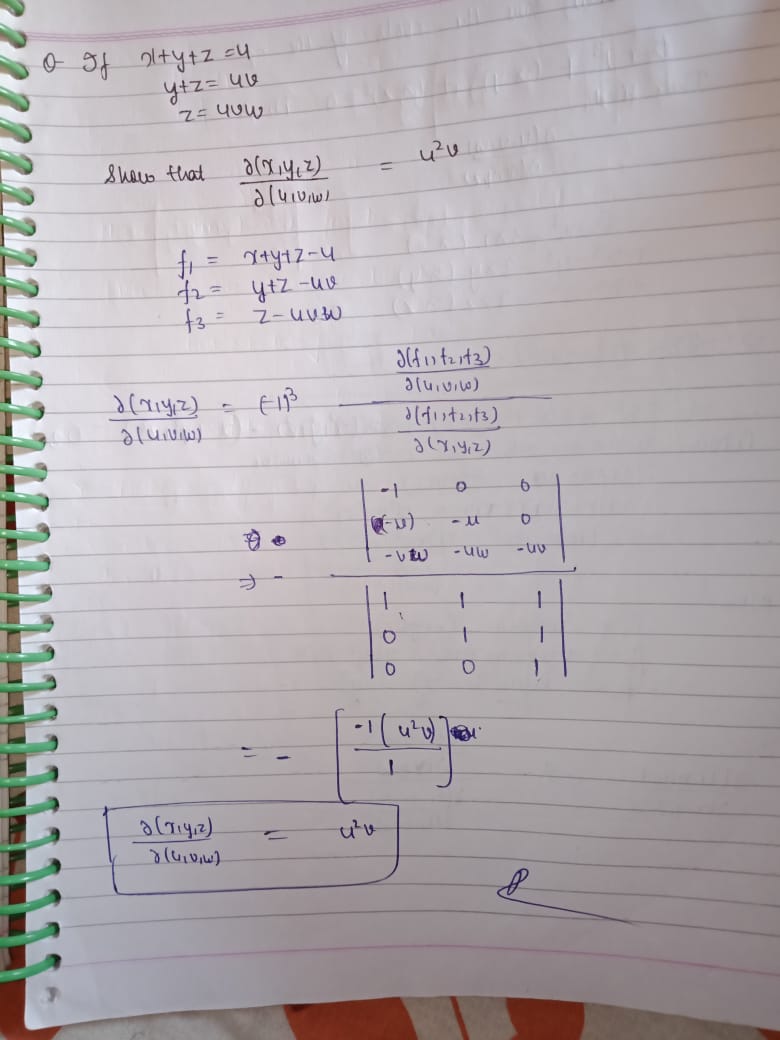 Q If x+y+z=u
y+z=uv
z=uvw
Show that ∂(x,y,z)/∂(u,v,w) = u²v
f₁ = x+y+z-u
f₂ = y+z-uv
f₃ = z-uvw
∂(x,y,z)/∂(u,v,w) = (-1)³ ∂(f₁,f₂,f₃)/∂(u,v,w) / ∂(f₁,f₂,f₃)/∂(x,y,z)
| -1 0 0 |
| (-v) -u 0 |
| -vw -uw -uv |
⇒ -
| 1 1 1 |
| 0 1 1 |
| 0 0 1 |
= - [-1(u²v)/1]
∂(x,y,z)/∂(u,v,w) = u²v